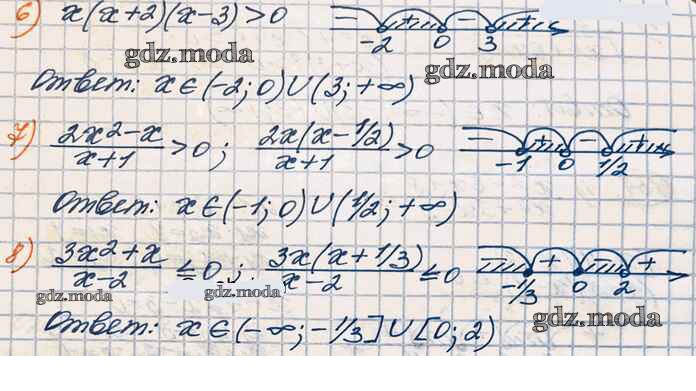 6) x(x+2)(x-3)>0 − + − +
-2 0 3
gdz.moda gdz.moda
Ответ: x∈(-2; 0)∪(3; +∞)
7) 2x²-x/x+1 >0; 2x(x-1/2)/x+1 >0 − + − +
-1 0 1/2
Ответ: x∈(-1; 0)∪(1/2; +∞)
8) 3x²+x/x-2 ≤0; 3x(x+1/3)/x-2 ≤0 − + − +
-1/3 0 2
gdz.moda gdz.moda gdz.moda
Ответ: x∈(-∞; -1/3]∪[0; 2)